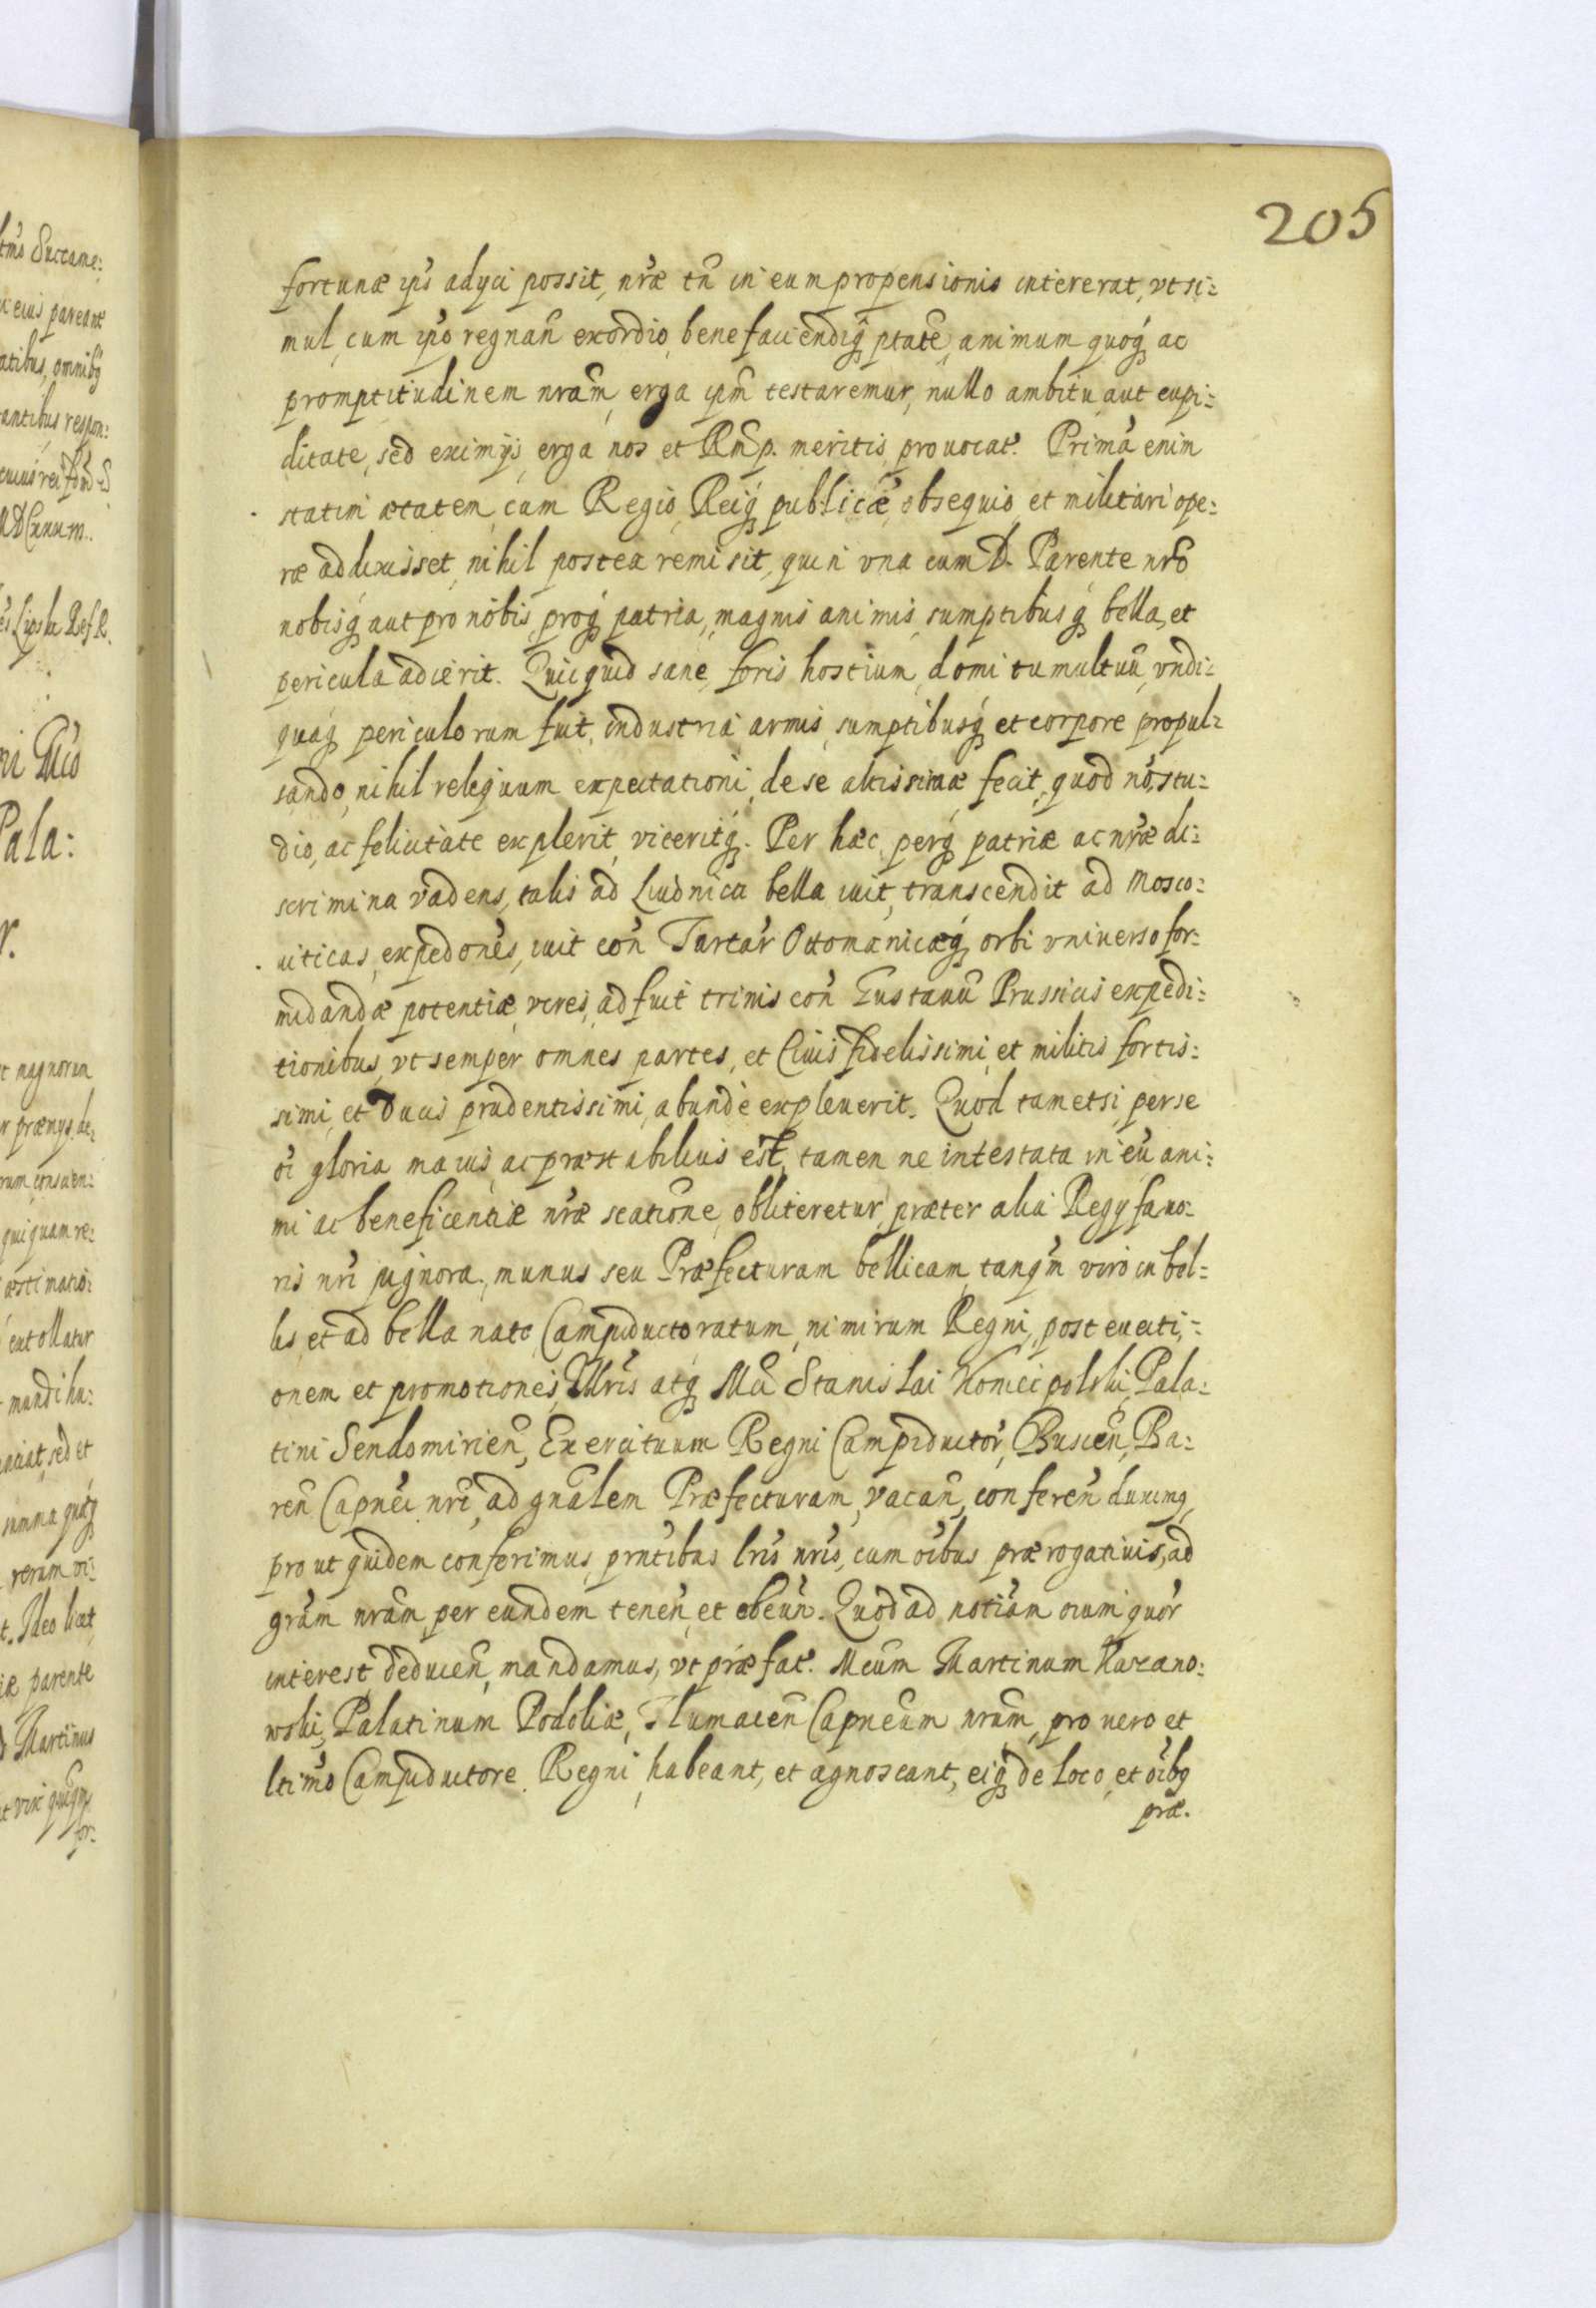 205
fortunæ ip̃s adijci possit, nr̃æ tñ in eum propensionis intererat, vt si:
mul, cum ip̃o regnañ exordio, benefaciendiq; ptãte, animum quoq; ac
promptitudinem nrãm, erga ip̃m testaremur, nullo ambitu aut cupi:
ditate, sed eximijs, erga nos et Rẽmp. meritis, prouocat̃. Prima enim
statim ætatem, cum Regio, Reiq; publicæ, obsequio, et militari ope:
ræ addixisset, nihil postea remisit, quin vna cum D. Parente nrõ
nobisq; aut pro nobis, proq; patria, magnis animis, sumptibusq; bella, et
pericula adierit. Quicquid sane, foris hostium, domi tumultuũ, vndi:
quaq; periculorum fuit, industria, armis, sumptibusq; et corpore propul:
sando, nihil reliquum expectationi, de se altissimæ fecit, quod nõ, stu:
dio, ac felicitate explerit, viceritq;. Per hæc, perq; patriæ ac nr̃æ di:
scrimina vadens, talis ad Liuonica bella iuit, transcendit ad Mosco:
uiticas, expedões, iuit coñ Tartar̃ Ottomanicæq; orbi vniuerso for:
midandæ potentiæ, vires, adfuit trinis coñ Gustauũ Prussicis expedi:
tionibus, vt semper omnes partes, et Ciuis fidelissimi, et militis fortis:
simi, et Ducis prudentissimi, abundè expleuerit. Quod tametsi, per se
õi gloria maius, ac præstabilius est, tamen ne intestata in eũ ani:
mi ac beneficentiæ nr̃æ obliteretur, præter alia Regij fauo:
ris nr̃i pignora, munus seu Præfecturam bellicam, tanq̃m viro in bel:
lis, et ad bella nato, Campiductoratum, nimirum Regni, post euecti,:
onem et promotionem, Illr̃is atq; Mci Stanislai Koniecpolski, Pala:
tini Sendomirieñ, Exercituum Regni Campiductor̃, Busceñ, Ba:
reñ Capnẽi nrĩ, ad gnãlem Præfecturam, vacañ, confereñ duximq,
prout quidem conferimus, prñtibus lrĩs nrĩs, cum oĩbus prærogatiuis, ad
grãm nrãm, per eundem teneñ, et obeuñ. Quod ad notiãm oium quor̃
interest, deduceñ, mandamus, vt præfat̃. Mcum Martinum Kazano:
wski, Palatinum Podoliæ, Tlumaceñ Capneum nrũm, pro uero et
ltimo Campiductore Regni, habeant, et agnoscant, eiq; de loco, et oĩbq
præ.